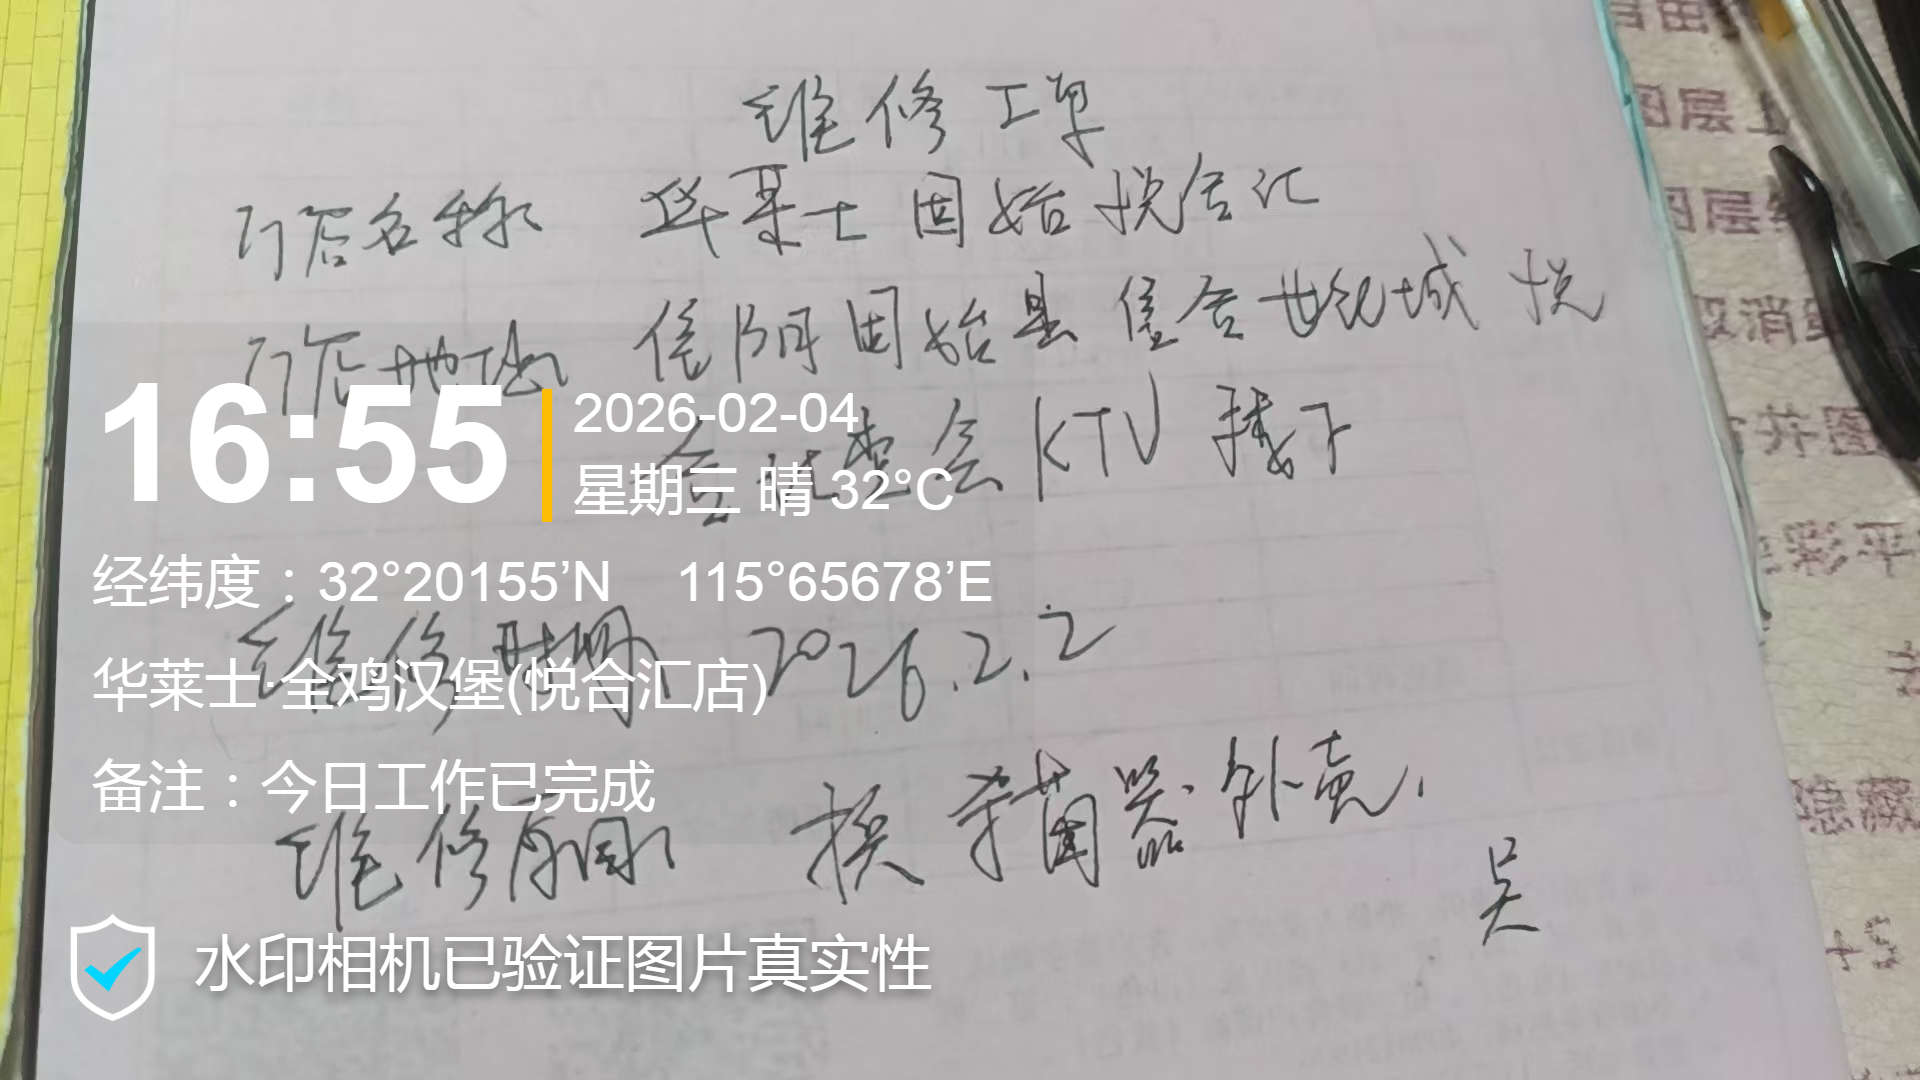 维修工单
门店名称 华莱士固始悦合汇
门店地址 信阳固始县信合世纪城悦
合汇皇会KTV楼下
16:55
2026-02-04
星期三 晴 32°C
经纬度：32°20155’N 115°65678’E
维修时间 2026.2.2
华莱士·全鸡汉堡(悦合汇店)
备注：今日工作已完成
维修原因 换杀菌器外壳.
吴
水印相机已验证图片真实性
图层
图层
取消
合并图
色彩平
隐藏